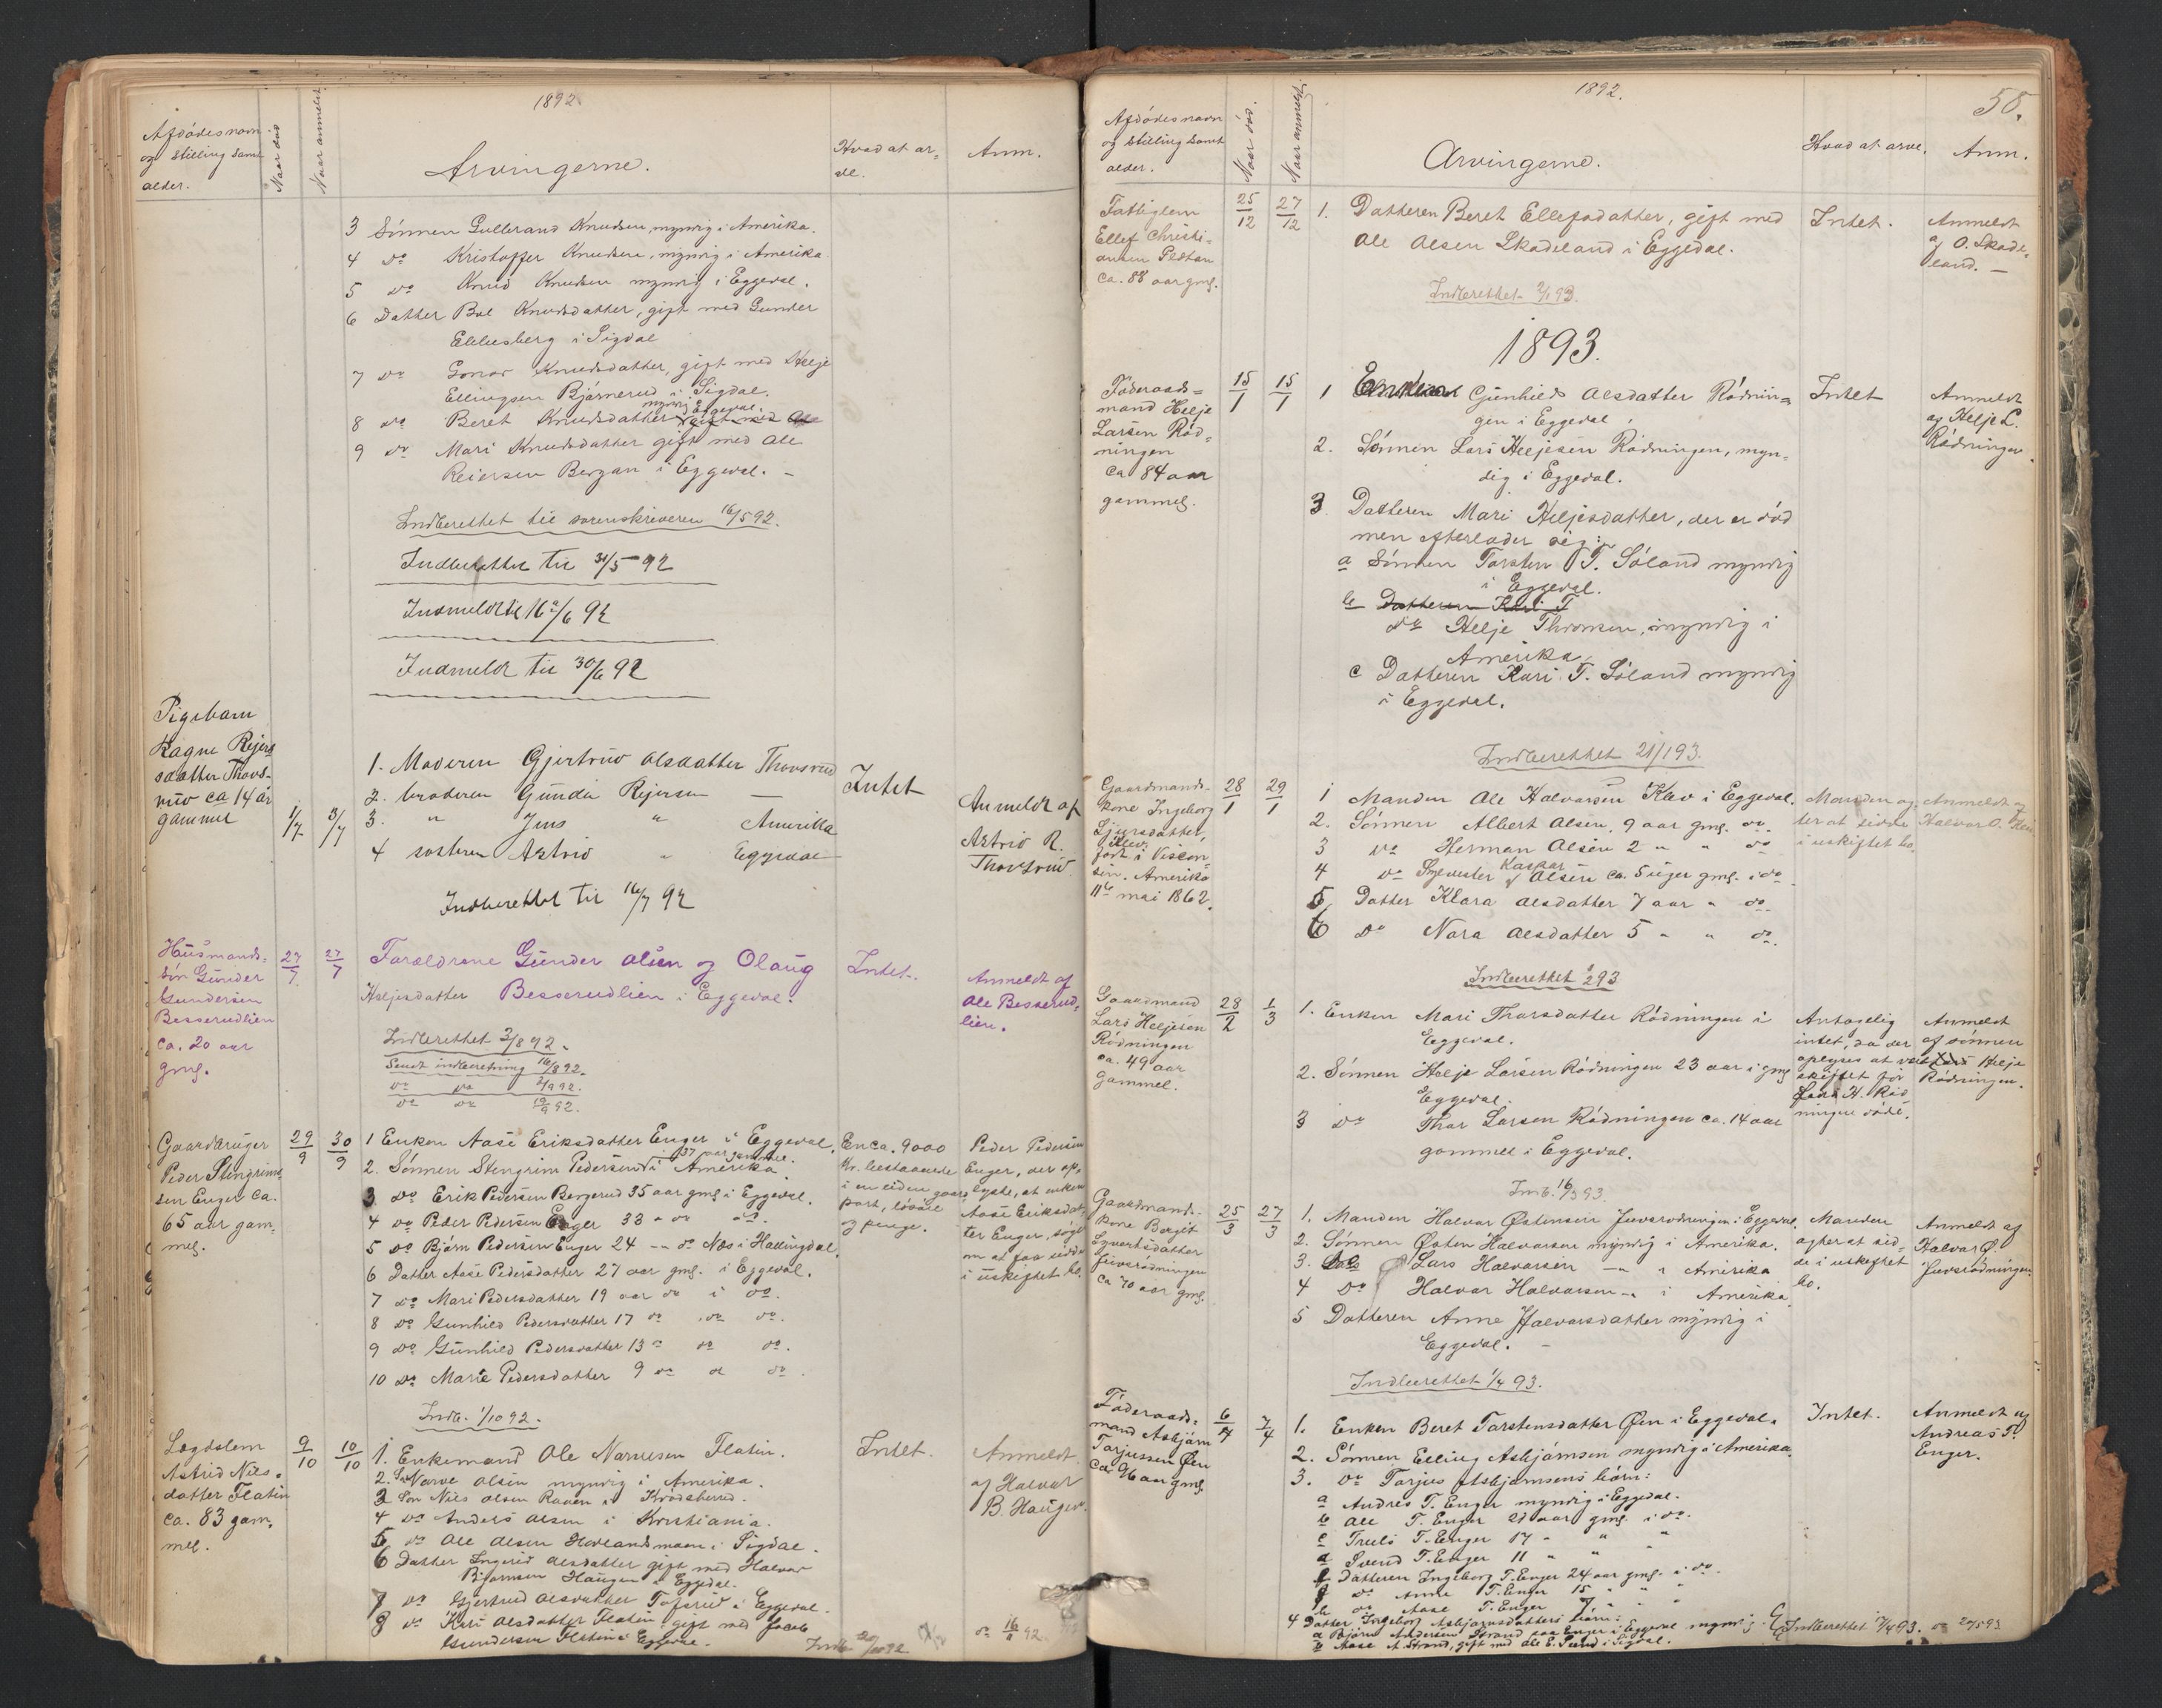 1892
Afdødes navn
og stilling samt
alder.
Naar død
Naar anmeldt
Arvingerne.
Hvad at ar=
ve.
Anm.
3 Sønnen Gulbrand Knudsen, myndig i Amerika.
4 do Kristoffer Knudsen, myndig i Amerika.
5 do Knud Knudsen myndig i Eggedal.
6 Datter Bol Knudsdatter, gift med Gunder
i Sigdal
7 do Gonor Knudsdatter, gift med Helje
Ellingsen Bjørnerud i Sigdal.
myndig Eggedal.
8 do Beret Knudsdatter gift med Ole
9 do Mari Knudsdatter gift med Ole
Reiersen Bergan i Eggedal. -
Indberettet til sorenskriveren 16/5 92.
Indberettet til 31/5 - 92
Indmeldt til 16/6 92
Indmeldt til 30/6 92
Pigebarn
Ragne Rejers
datter Thovs-
rud ca 14 år
gammel
1/7
3/7
1. Moderen Gjertrud Olsdatter Thovsrud
2. broderen Gunda Rejersen —
3. " Jens " Amerika
4 søsteren Astrid " Eggedal
Intet
Anmeldt af
Astrid R.
Thovsrud.
Indberettet til 16/7 92
Husmands=
søn Gunder
Gundersen
Besserudlien
ca. 20 aar
gml.
27/7
27/7
Forældrene Gunder Olsen og Olaug
Heljesdatter Besserudlien i Eggedal.
Intet.
Anmeldt af
Ole Besserud=
lien.
Indberettet 3/8 92.
Sendt indberetning 16/8 92.
do do 2/9 92.
do do 19/9 92.
Gaardbruger
Peder Stengrim
sen Enger ca.
65 aar gam=
mel.
29/9
30/9
1 Enken Aase Eriksdatter Enger i Eggedal.
37 aar gammel.
2. Sønnen Stengrim Pedersen i Amerika
3 do Erik Pedersen Bergerud 35 aar gml i Eggedal.
4 do Peder Pedersen Enger 33 " do do.
5 do Bjørn Pedersen Enger 24 - do Næs i Hallingdal.
6 Datter Aase Pedersdatter 27 aar gml. i Eggedal.
7 do Mari Pedersdatter 19 aar do i do.
8 do Gunhild Pedersdatter 17 do do do.
9 do Gunhild Pedersdatter 13 " do do.
10 do Marie Pedersdatter 9 do do do.
En ca. 9000
kr. bestaaende
i en eiden gaard
part, løsøre
og penge.
Peder Pedersen
Enger, der op=
lyste, at enken
Aase Eriksdat=
ter Enger, søger
om at faa sidde
i uskiftet bo.
Indb. 1/10 92.
Lægdslem
Astrid Nils=
datter Flatin
ca. 83 gam=
mel.
9/10
10/10
1. Enkemand Ole Narvesen Flatin.
2. Søn Narve Olsen myndig i Amerika.
3 Søn Nils Olsen Raaen i Krødsherred.
4 do Anders Olsen i Kristiania.
5 do Ole Olsen Hovlandsmoen i Sigdal.
6 Datter Ingerid Olsdatter gift med Halvor
Bjørnsen Haugen i Eggedal.
7 do Gjertrud Olsdatter Tofsrud i Eggedal.
8 do Kari Olsdatter Flatin gift med Jacob
Gundersen Flatin i Eggedal.
Intet.
Anmeldt
af Halvor
B. Haugen.
Indb. 92
do 16/11 92
1892.
58.
Afdødes navn
og stilling samt
alder.
Naar død.
Naar anmeldt
Arvingerne.
Hvad at arve.
Anm.
Fattiglem
Ellef Christi=
ansen Plassan
ca. 88 aar gml.
25/12
27/12
1. Datteren Beret Ellefsdatter, gift med
Ole Olsen Skadeland i Eggedal.
Intet.
Anmeldt
af O. Skade=
land. -
Indberettet 2/1 93.
1893.
Føderaads=
mand Helje
Larsen Rød=
ningen
ca 84 aar
gammel.
15/1
15/1
1 Enken Gunhild Olsdatter Rødnin=
gen i Eggedal.
2. Sønnen Lars Heljesen Rødningen, myn=
dig i Eggedal.
3 Datteren Mari Heljesdatter, der er død
men efterlader sig:
a Sønnen Torsten T. Søland myndig
i Eggedal.
b Datteren Kari T
do Helje Thronsen, myndig i
Amerika
c Datteren Kari T. Søland myndig
i Eggedal.
Intet
Anmeldt
af Helje L.
Rødningen.
Indberettet 21/1 93.
Gaardmands-
kone Ingeborg
Sjursdatter
Klev.
født i Viscon=
sin. Amerika
11te mai 1862.
28/1
29/1
1 Manden Ole Halvorsen Klev i Eggedal.
2. Sønnen Albert Olsen, 9 aar gml. do
3 do Herman Olsen 2 " " do
Kaspar
4 do Sylvester Olsen ca. 5 uger gml. i do
5 Datter Klara Olsdatter 7 aar " do
6 do Nora Olsdatter 5 " " do.
Manden ag=
ter at sidde
i uskiftet bo.
Anmeldt af
Halvor O. Klev
Indberettet 1/2 93
Gaardmand
Lars Heljesen
Rødningen
ca. 49 aar
gammel.
28/2
1/3
1. Enken Mari Thorsdatter Rødningen i
Eggedal.
2. Sønnen Helje Larsen Rødningen 23 aar i gml
Eggedal.
3 do Thor Larsen Rødningen ca. 14 aar
gammel i Eggedal.
Antagelig
intet, da der
oplyses at være
skiftet før
Lars H. Rød
ningen døde.
Anmeldt
af sønnen
Helje
Rødningen.
Indb. 16/3 93.
Gaardmands-
kone Bergit
Syvertsdatter
Juvsrødningen
ca 70 aar gml.
25/3
27/3
1. Manden Halvor Østensen Juvsrødningen i Eggedal.
2. Sønnen Østen Halvorsen myndig i Amerika.
3. do Lars Halvorsen -" " Amerika
4 do Halvor Halvorsen -" i Amerika
5 Datteren Anne Halvorsdatter myndig i
Eggedal. -
Manden
agter at sid=
de i uskiftet
bo.
Anmeldt af
Halvor Ø.
Juvsrødningen.
Indberettet 1/4 93.
Føderaads=
mand Asbjørn
Tarjussen Øen
ca. 76 aar gml.
6/4
7/4
1. Enken Beret Torstensdatter Øen i Eggedal.
2. Sønnen Elling Asbjørnsen myndig i Amerika.
3. do Tarjus Asbjørnsens børn:
a Andres T. Enger myndig i Eggedal.
b Ole T. Enger 21 aar gml i do.
c Truls T. Enger 17 " " "
d Svend T. Enger 11 " " "
Datteren Ingeborg T. Enger 24 aar gml. i do.
do Anne T. Enger 15 " " "
h do Aase T. Enger 7 " " "
4 Datter Ingeborg Asbjørnsdatters børn:
a Bjørn Andersen Strand paa Enger i Eggedal myndig
b Aase A. Strand, gift med Ole E. i Sigdal.
Intet.
Anmeldt af
Andreas T.
Enger.
Indberettet 17/4 93. do 20/5 93